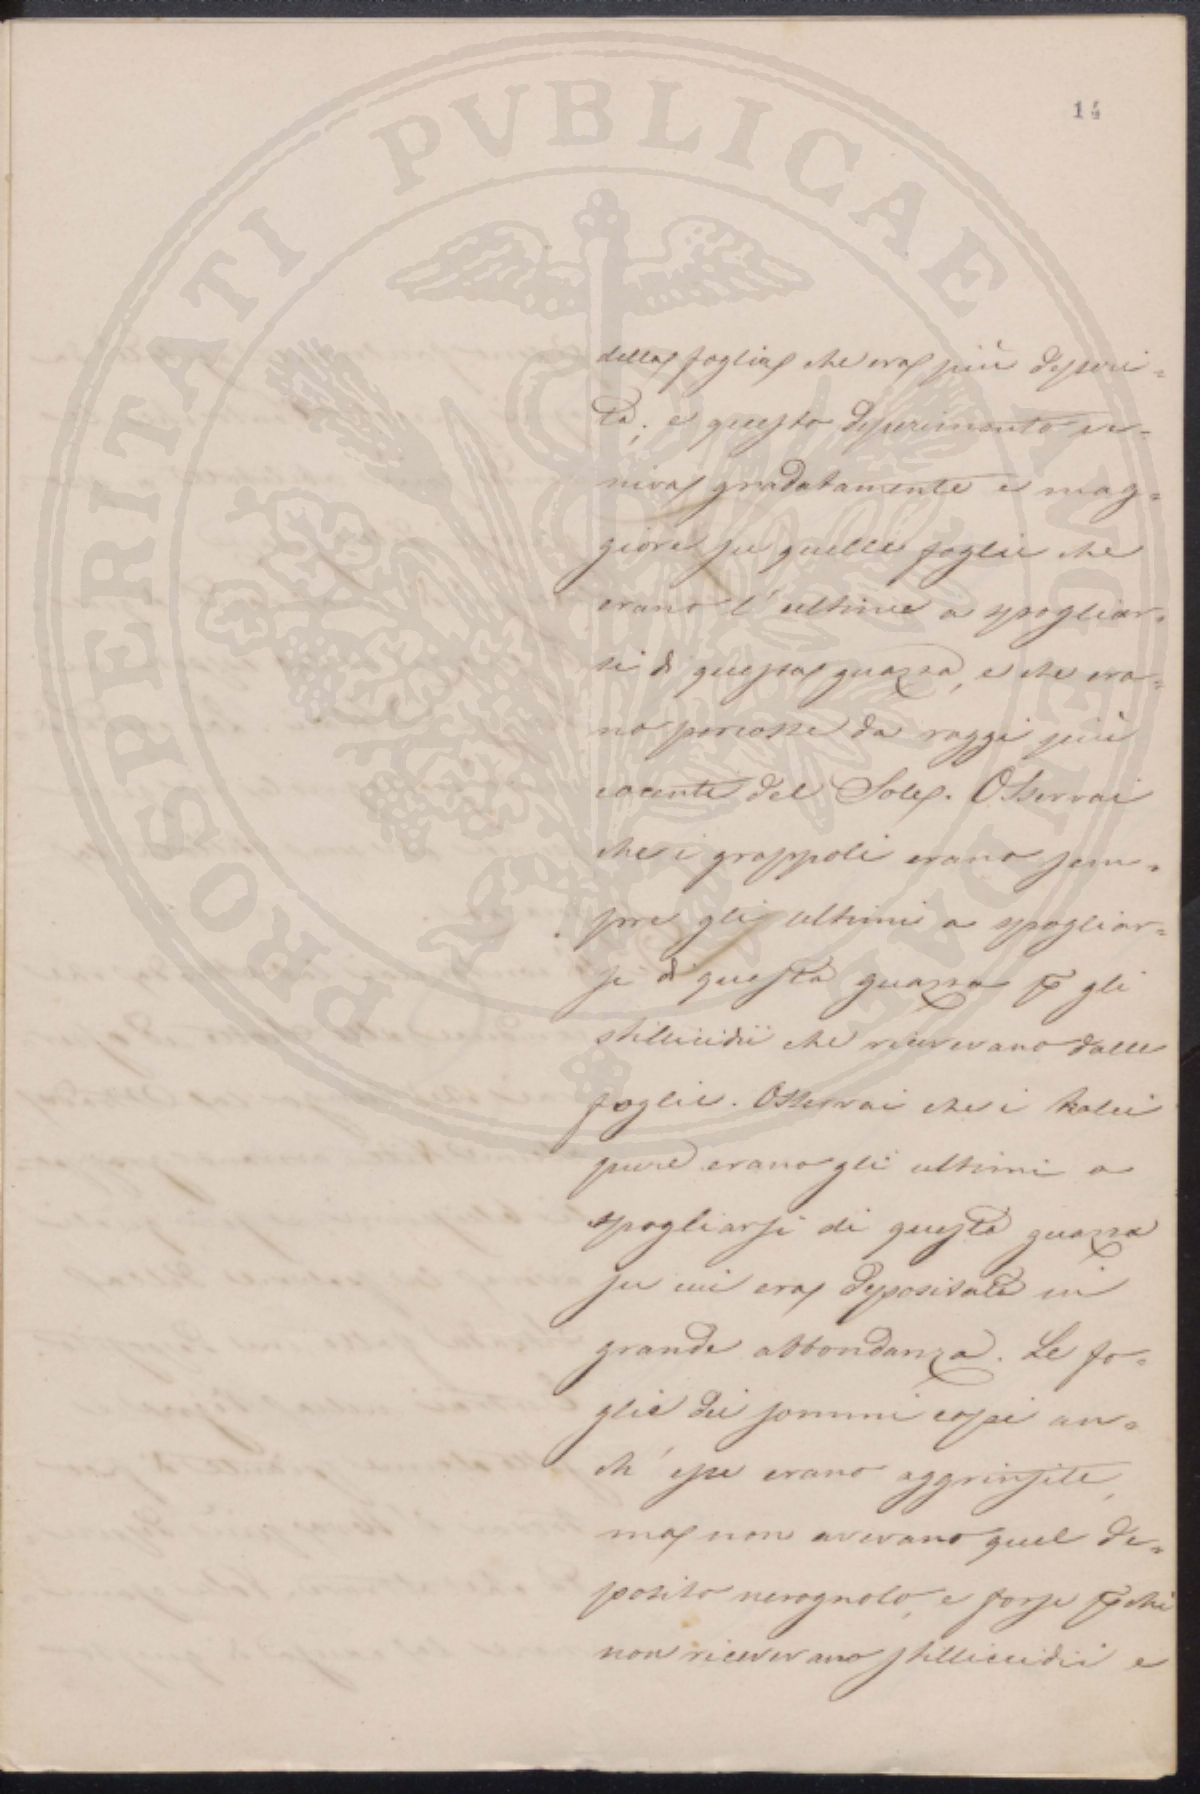 PROSPERITATI PVBLICAE AVGENDAE
14
della foglia che era più deperi=
ta; e questo deperimento ve=
niva gradatamente e mag=
giore su quelle foglie che
erano l'ultime a spogliar=
si di questa guazza, e che era=
no percosse da raggi più
cocenti del Sole. Osservai
che i grappoli erano sem=
pre gli ultimi a spogliar=
si di questa guazza p gli
stillicidii che ricevevano dalle
foglie. Osservai che i tralci
pure erano gli ultimi a
spogliarsi di questa guazza
su cui era depositata in
grande abbondanza. Le fo=
glie dei sommi capi an=
ch'esse erano aggrinsite,
ma non avevano quel de=
posito nerognolo, e forse p chè
non ricevevano stilliccidii e